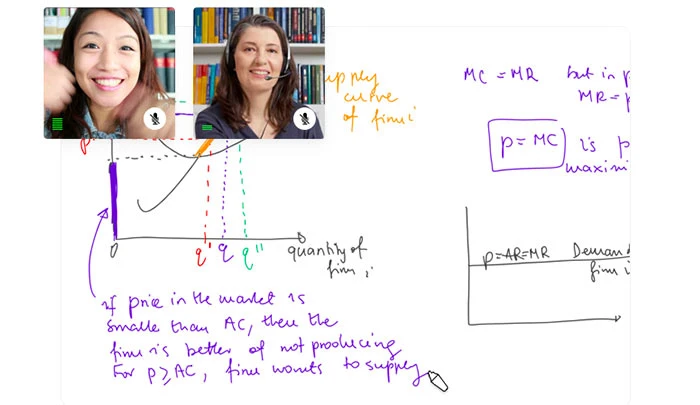 supply
curve
of firm i
MC = MR but in p
MR = p
p = MC is p
maximi
p
0 q' q q'' quantity of
firm i
p=AR=MR Deman
firm i
if price in the market is
smaller than AC, then the
firm is better of not producing
For p ≥ AC, firm wants to supply